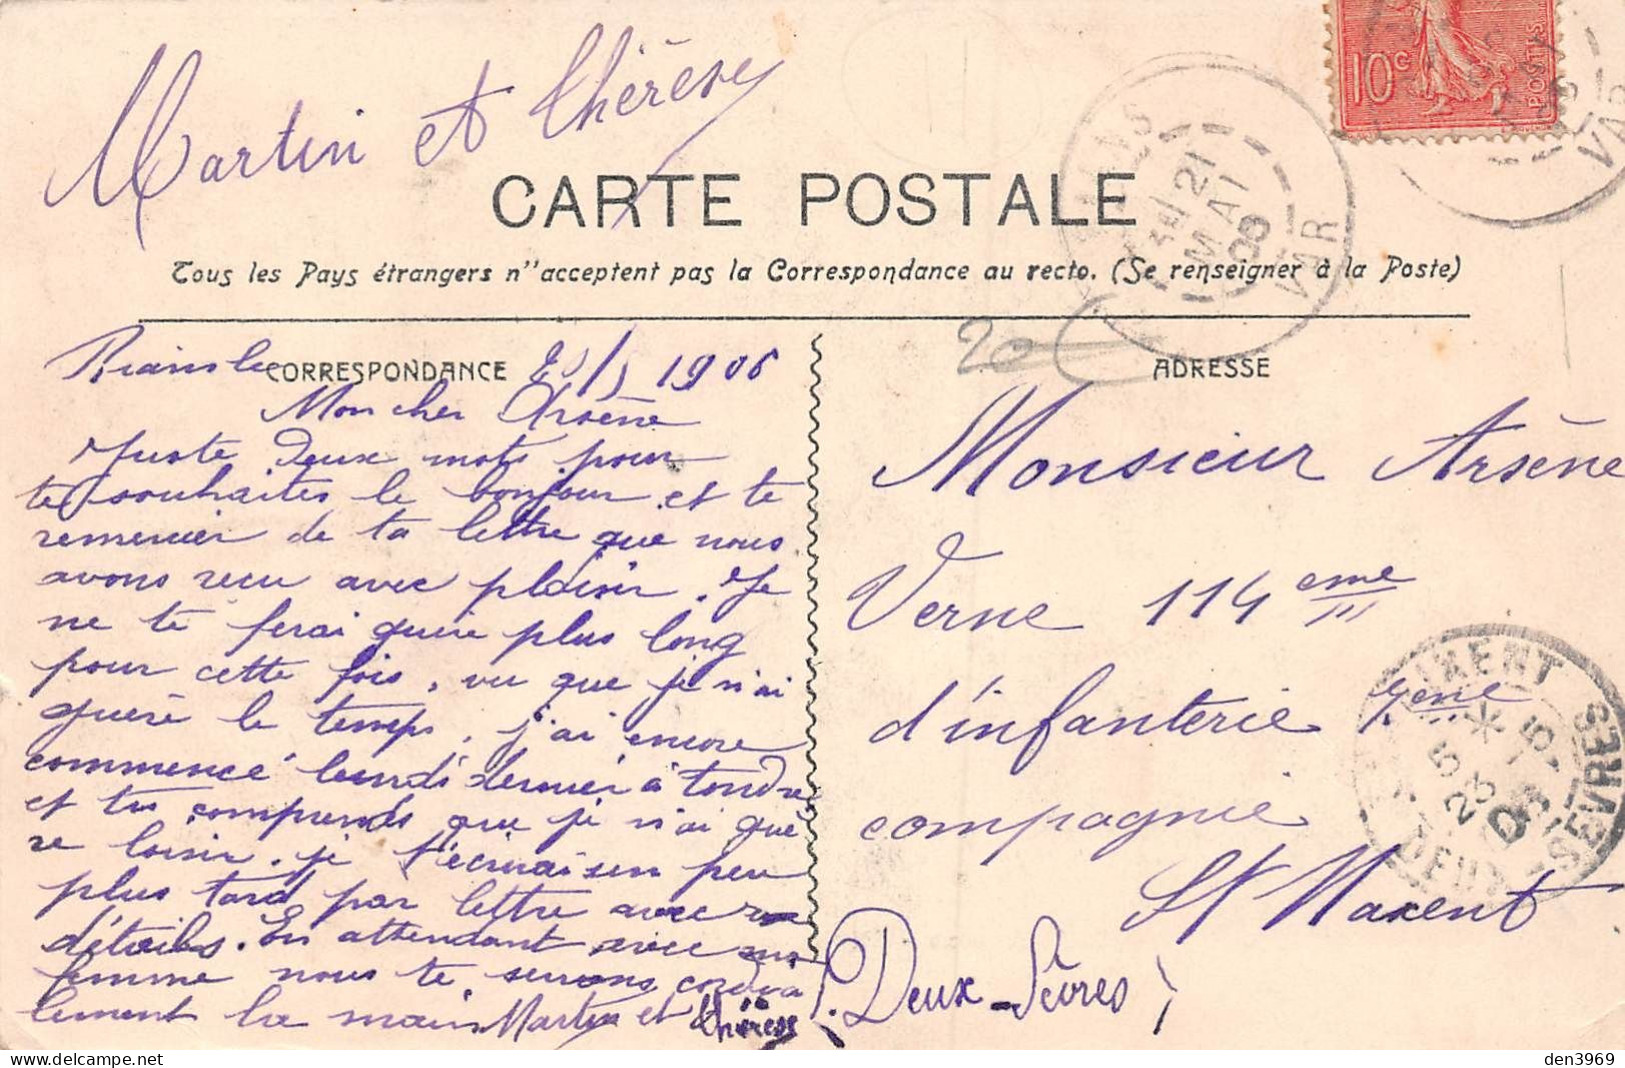 Martin et Thérèse
10c
POSTES
CARTE POSTALE
21
MAI
VAR
VAR
Tous les Pays étrangers n''acceptent pas la Correspondance au recto. (Se renseigner à la Poste)
20
Rians le CORRESPONDANCE 20/5 1906
ADRESSE
Mon cher Arsène
Juste Deux mots pour
te souhaiter le bonjour et te
remercier de ta lettre que nous
avons recu avec plaisir. Je
ne te ferai guère plus long
pour cette fois, vu que je n'ai
guère le temps, j'ai encore
commencé lundi dernier à tondre
et tu comprends que je n'ai guè
re loisir. je t'écrirai un peu
plus tard par lettre avec
détails. En attendant avec ma
femme nous te serrons cordia
lement la main Martin et Thérèse
Monsieur Arsène
Verne 114 eme
d'infanterie 9eme
compagnie
St Maxent
(Deux-Sèvres)
MAIXENT
5
23 - 5
DEUX-SÈVRES
den3969